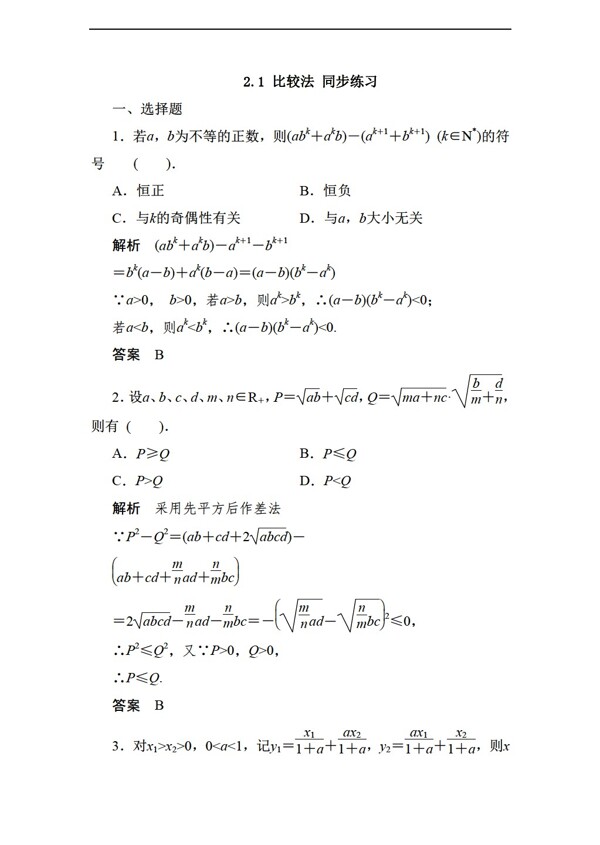 2.1 比较法 同步练习
一、选择题
1．若a，b为不等的正数，则(abᵏ＋aᵏb)－(aᵏ⁺¹＋bᵏ⁺¹) (k∈N*)的符
号 ( )．
A．恒正 B．恒负
C．与k的奇偶性有关 D．与a，b大小无关
解析 (abᵏ＋aᵏb)－aᵏ⁺¹－bᵏ⁺¹
＝bᵏ(a－b)＋aᵏ(b－a)＝(a－b)(bᵏ－aᵏ)
∵a>0， b>0，若a>b，则aᵏ>bᵏ，∴(a－b)(bᵏ－aᵏ)<0；
若a<b，则aᵏ<bᵏ，∴(a－b)(bᵏ－aᵏ)<0.
答案 B
2．设a、b、c、d、m、n∈R₊，P＝√(ab)＋√(cd)，Q＝√(ma＋nc)·√(b/m＋d/n)，
则有 ( )．
A．P≥Q B．P≤Q
C．P>Q D．P<Q
解析 采用先平方后作差法
∵P²－Q²＝(ab＋cd＋2√(abcd))－
(ab＋cd＋m/n ad＋n/m bc)
＝2√(abcd)－m/n ad－n/m bc＝－(√(m/n ad)－√(n/m bc))²≤0，
∴P²≤Q²，又∵P>0，Q>0，
∴P≤Q.
答案 B
3．对x₁>x₂>0，0<a<1，记y₁＝x₁/(1＋a)＋ax₂/(1＋a)，y₂＝ax₁/(1＋a)＋x₂/(1＋a)，则x